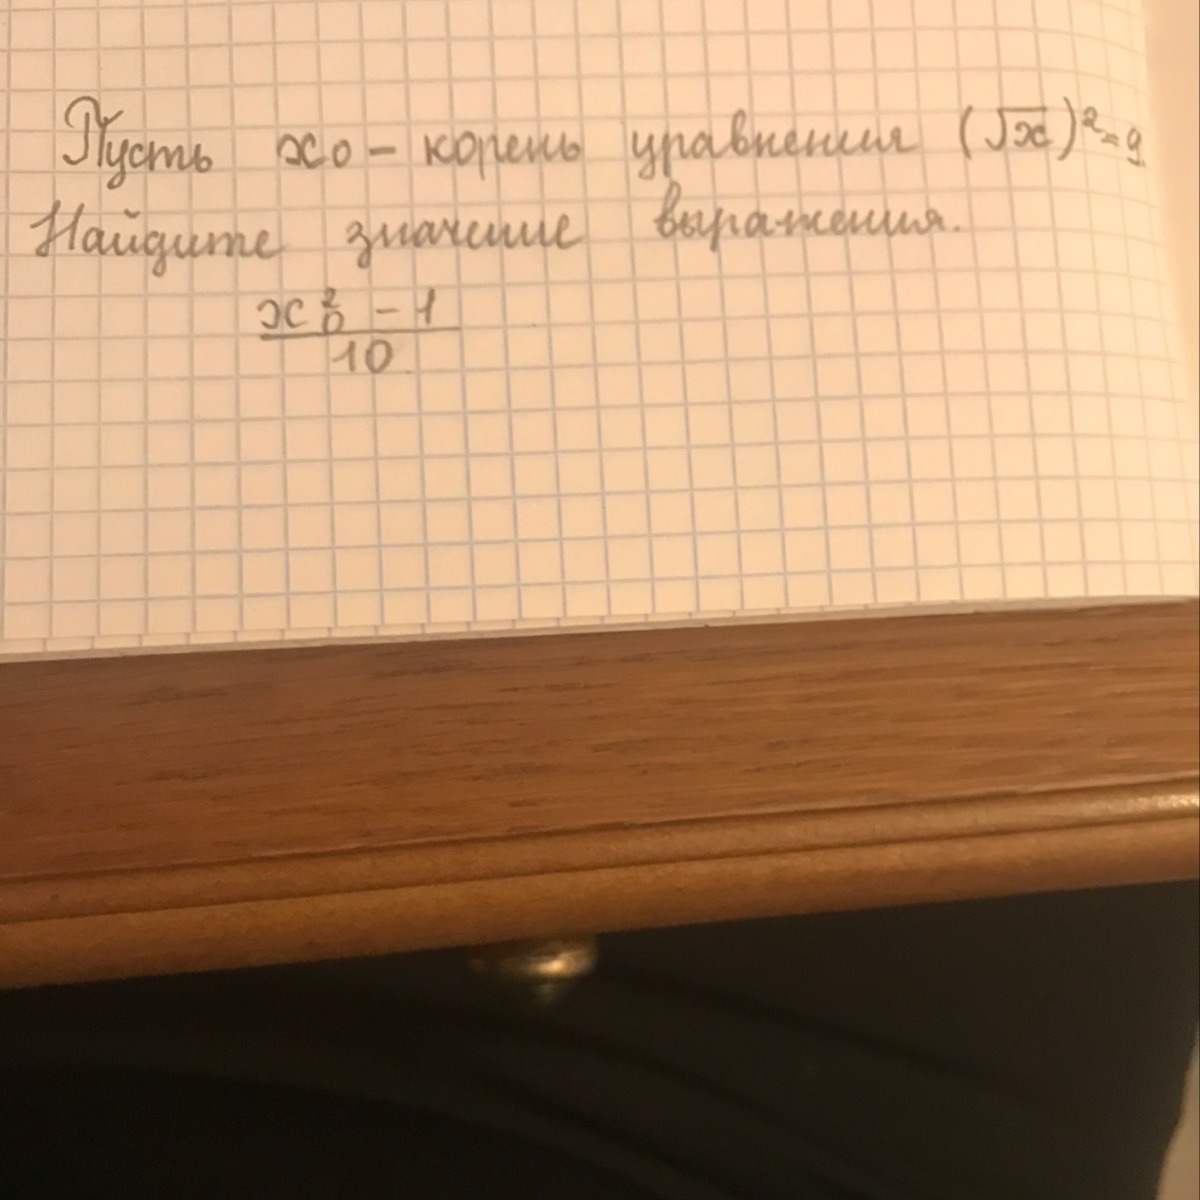 Пусть x₀ – корень уравнения (√x)² = 9
Найдите значение выражения.
x₀² – 1
10